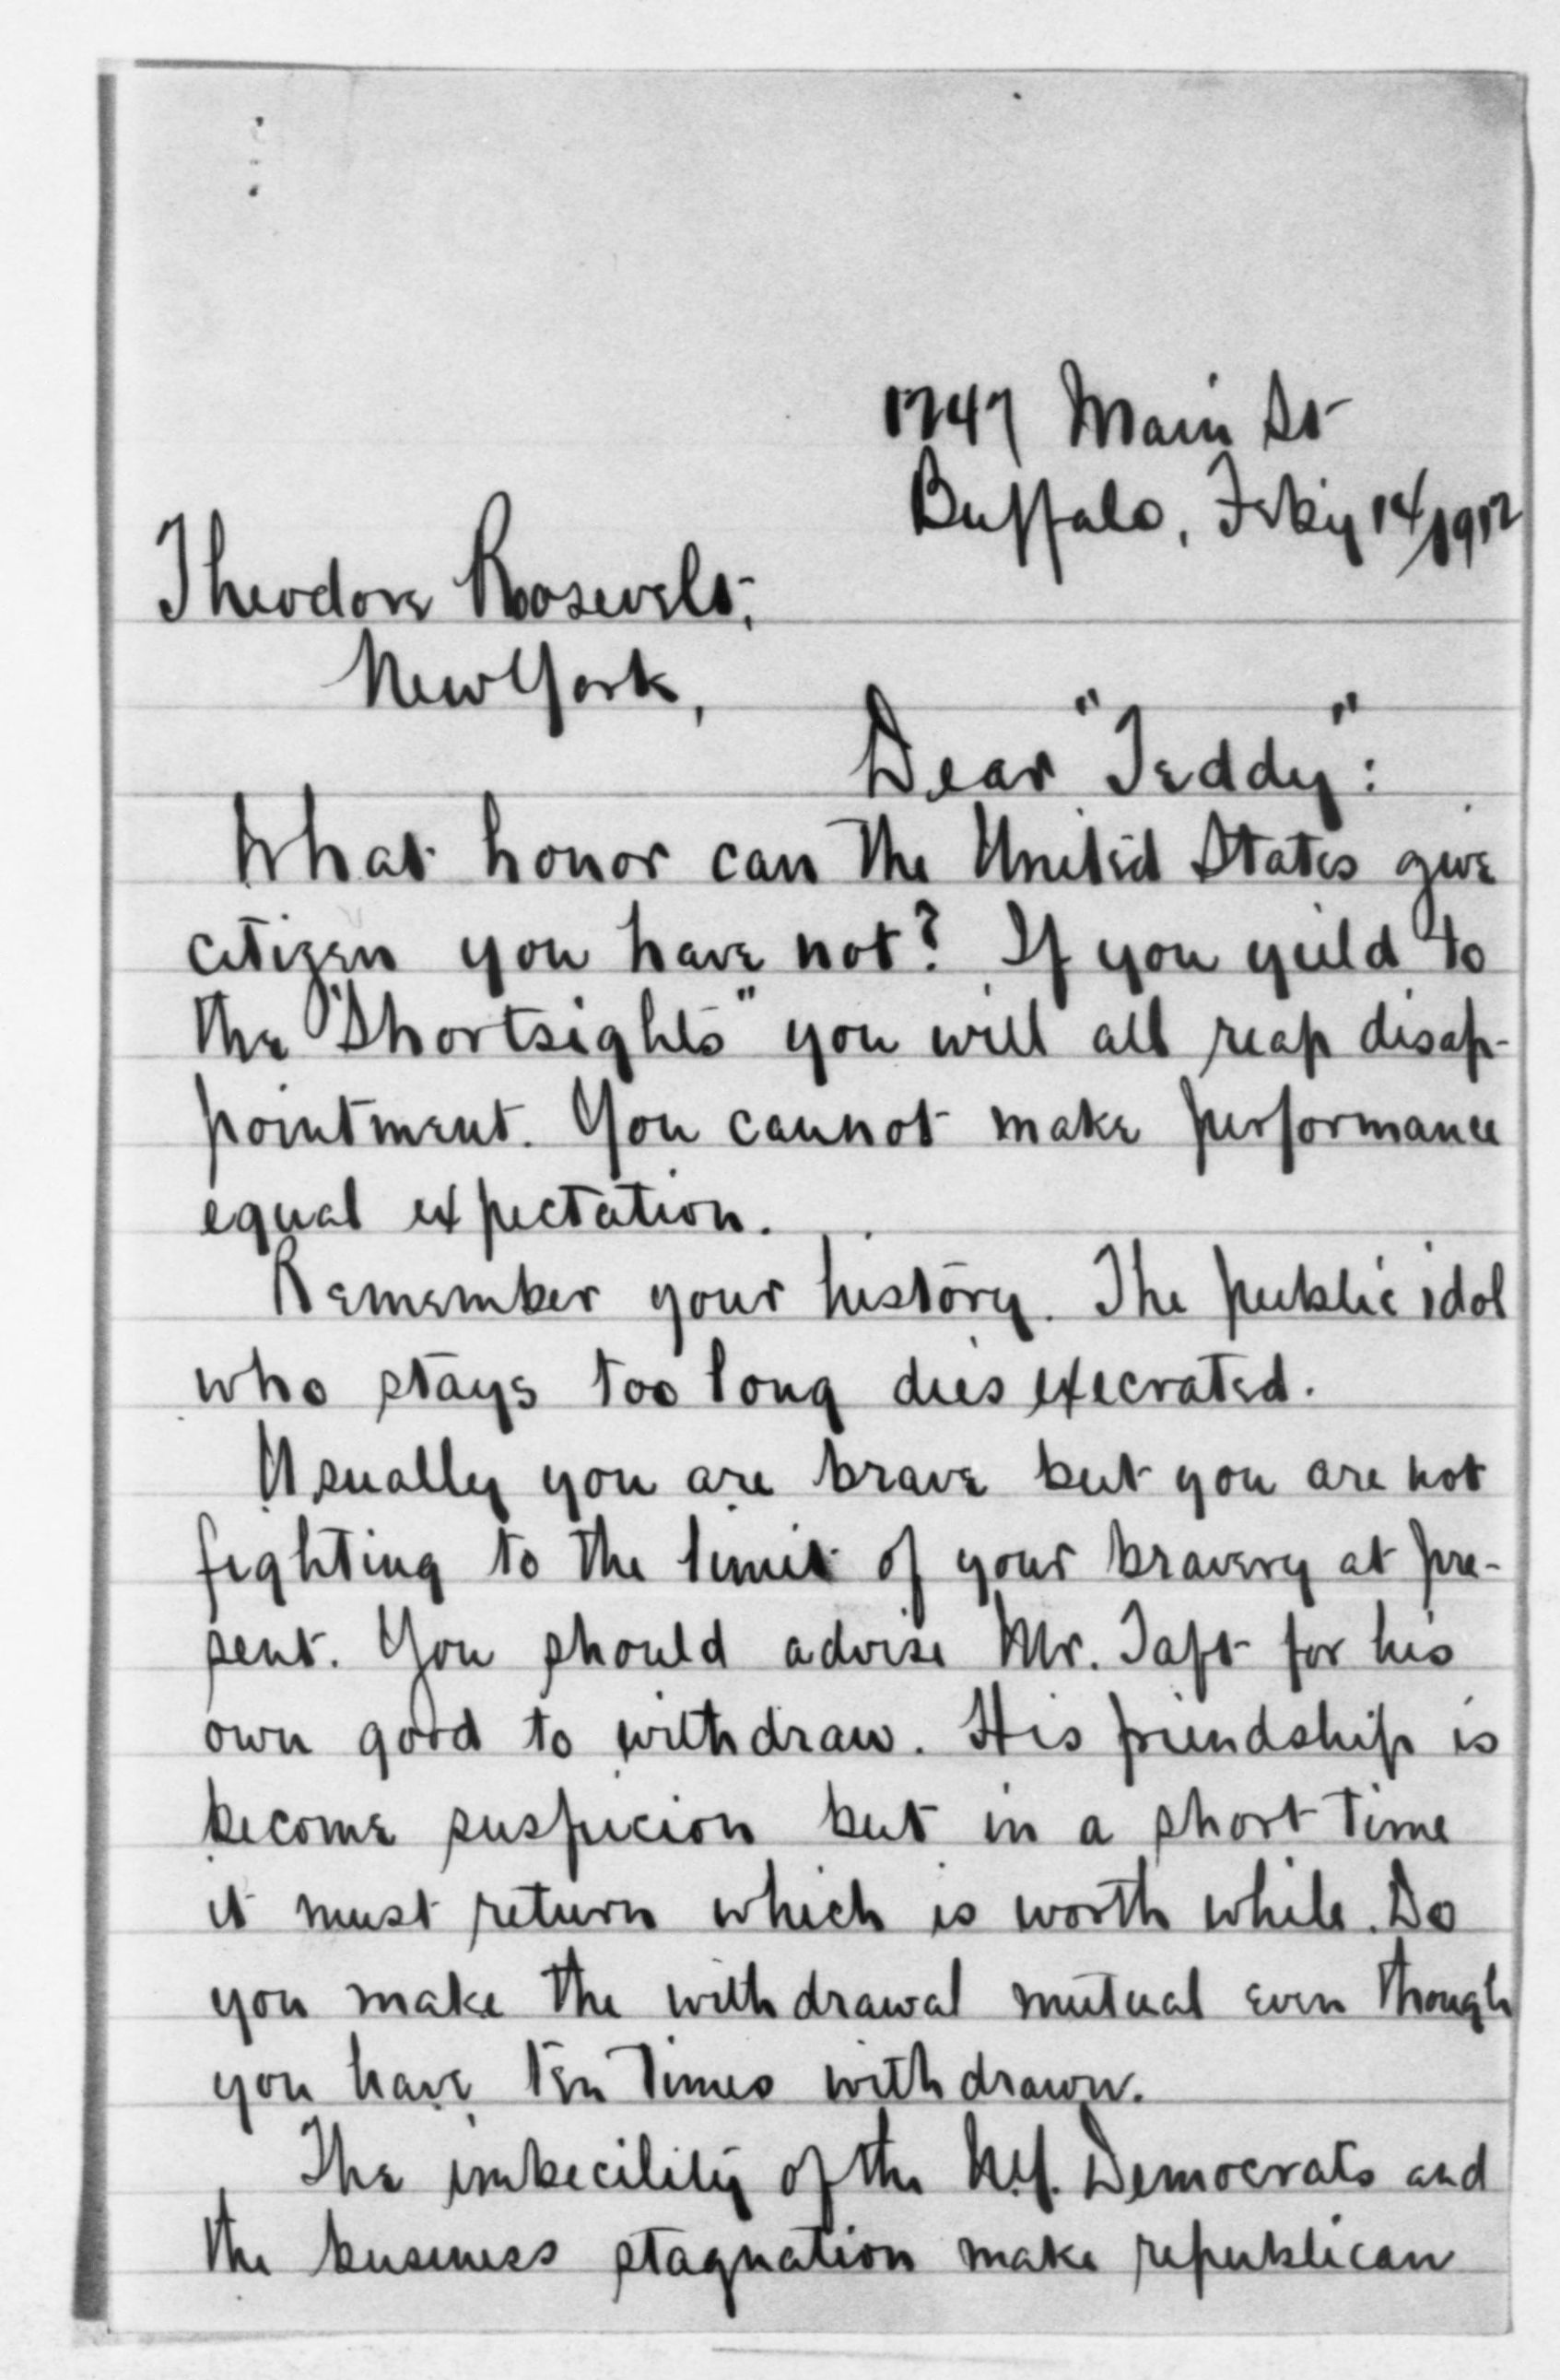 1747 Main St
Buffalo, Feby 14/1912
Theodore Roosevelt,
New York,
Dear "Teddy":
What honor can the United States give
citizen you have not? If you yield to
the "Shortsights" you will all reap disap-
pointment. You cannot make performance
equal expectation.
Remember your history. The public idol
who stays too long dies execrated.
Usually you are brave but you are not
fighting to the limit of your bravery at pre-
sent. You should advise Mr. Taft for his
own good to withdraw. His friendship is
become suspicion but in a short time
it must return which is worth while. Do
you make the withdrawal mutual even though
you have ten times withdrawn.
The imbecility of the N.Y. Democrats and
the business stagnation make republican